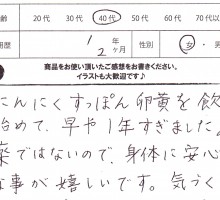 齢 20代 30代 40代 50代 60代
用歴 1年 2ヶ月 性別 女・男
商品をお使い頂いたご感想をお書きください。
イラストも大歓迎です♪
にんにくすっぽん卵黄を飲
始めて、早や1年すぎました。
薬ではないので、身体に安心
な事が嬉しいです。気づく